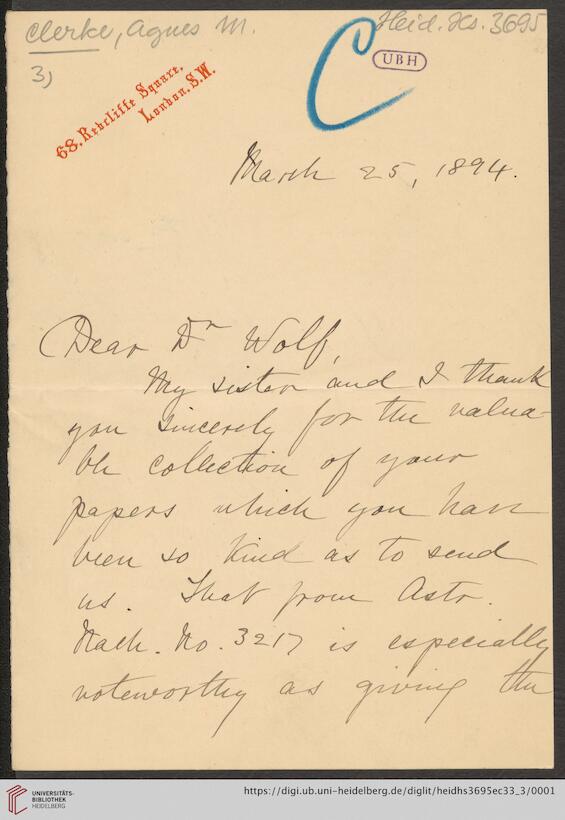 Clerke, Agnes M.
Heid. Hs. 3695
3)
C
UBH
68. Redcliffe Square.
London. S.W.
March 25, 1894.
Dear Dr Wolf,
My sister and I thank
you sincerely for the valua-
ble collection of your
papers which you have
been so kind as to send
us. That from Astr.
Nach. No. 3217 is especially
noteworthy as giving the
UNIVERSITÄTS-
BIBLIOTHEK
HEIDELBERG
https://digi.ub.uni-heidelberg.de/diglit/heidhs3695ec33_3/0001